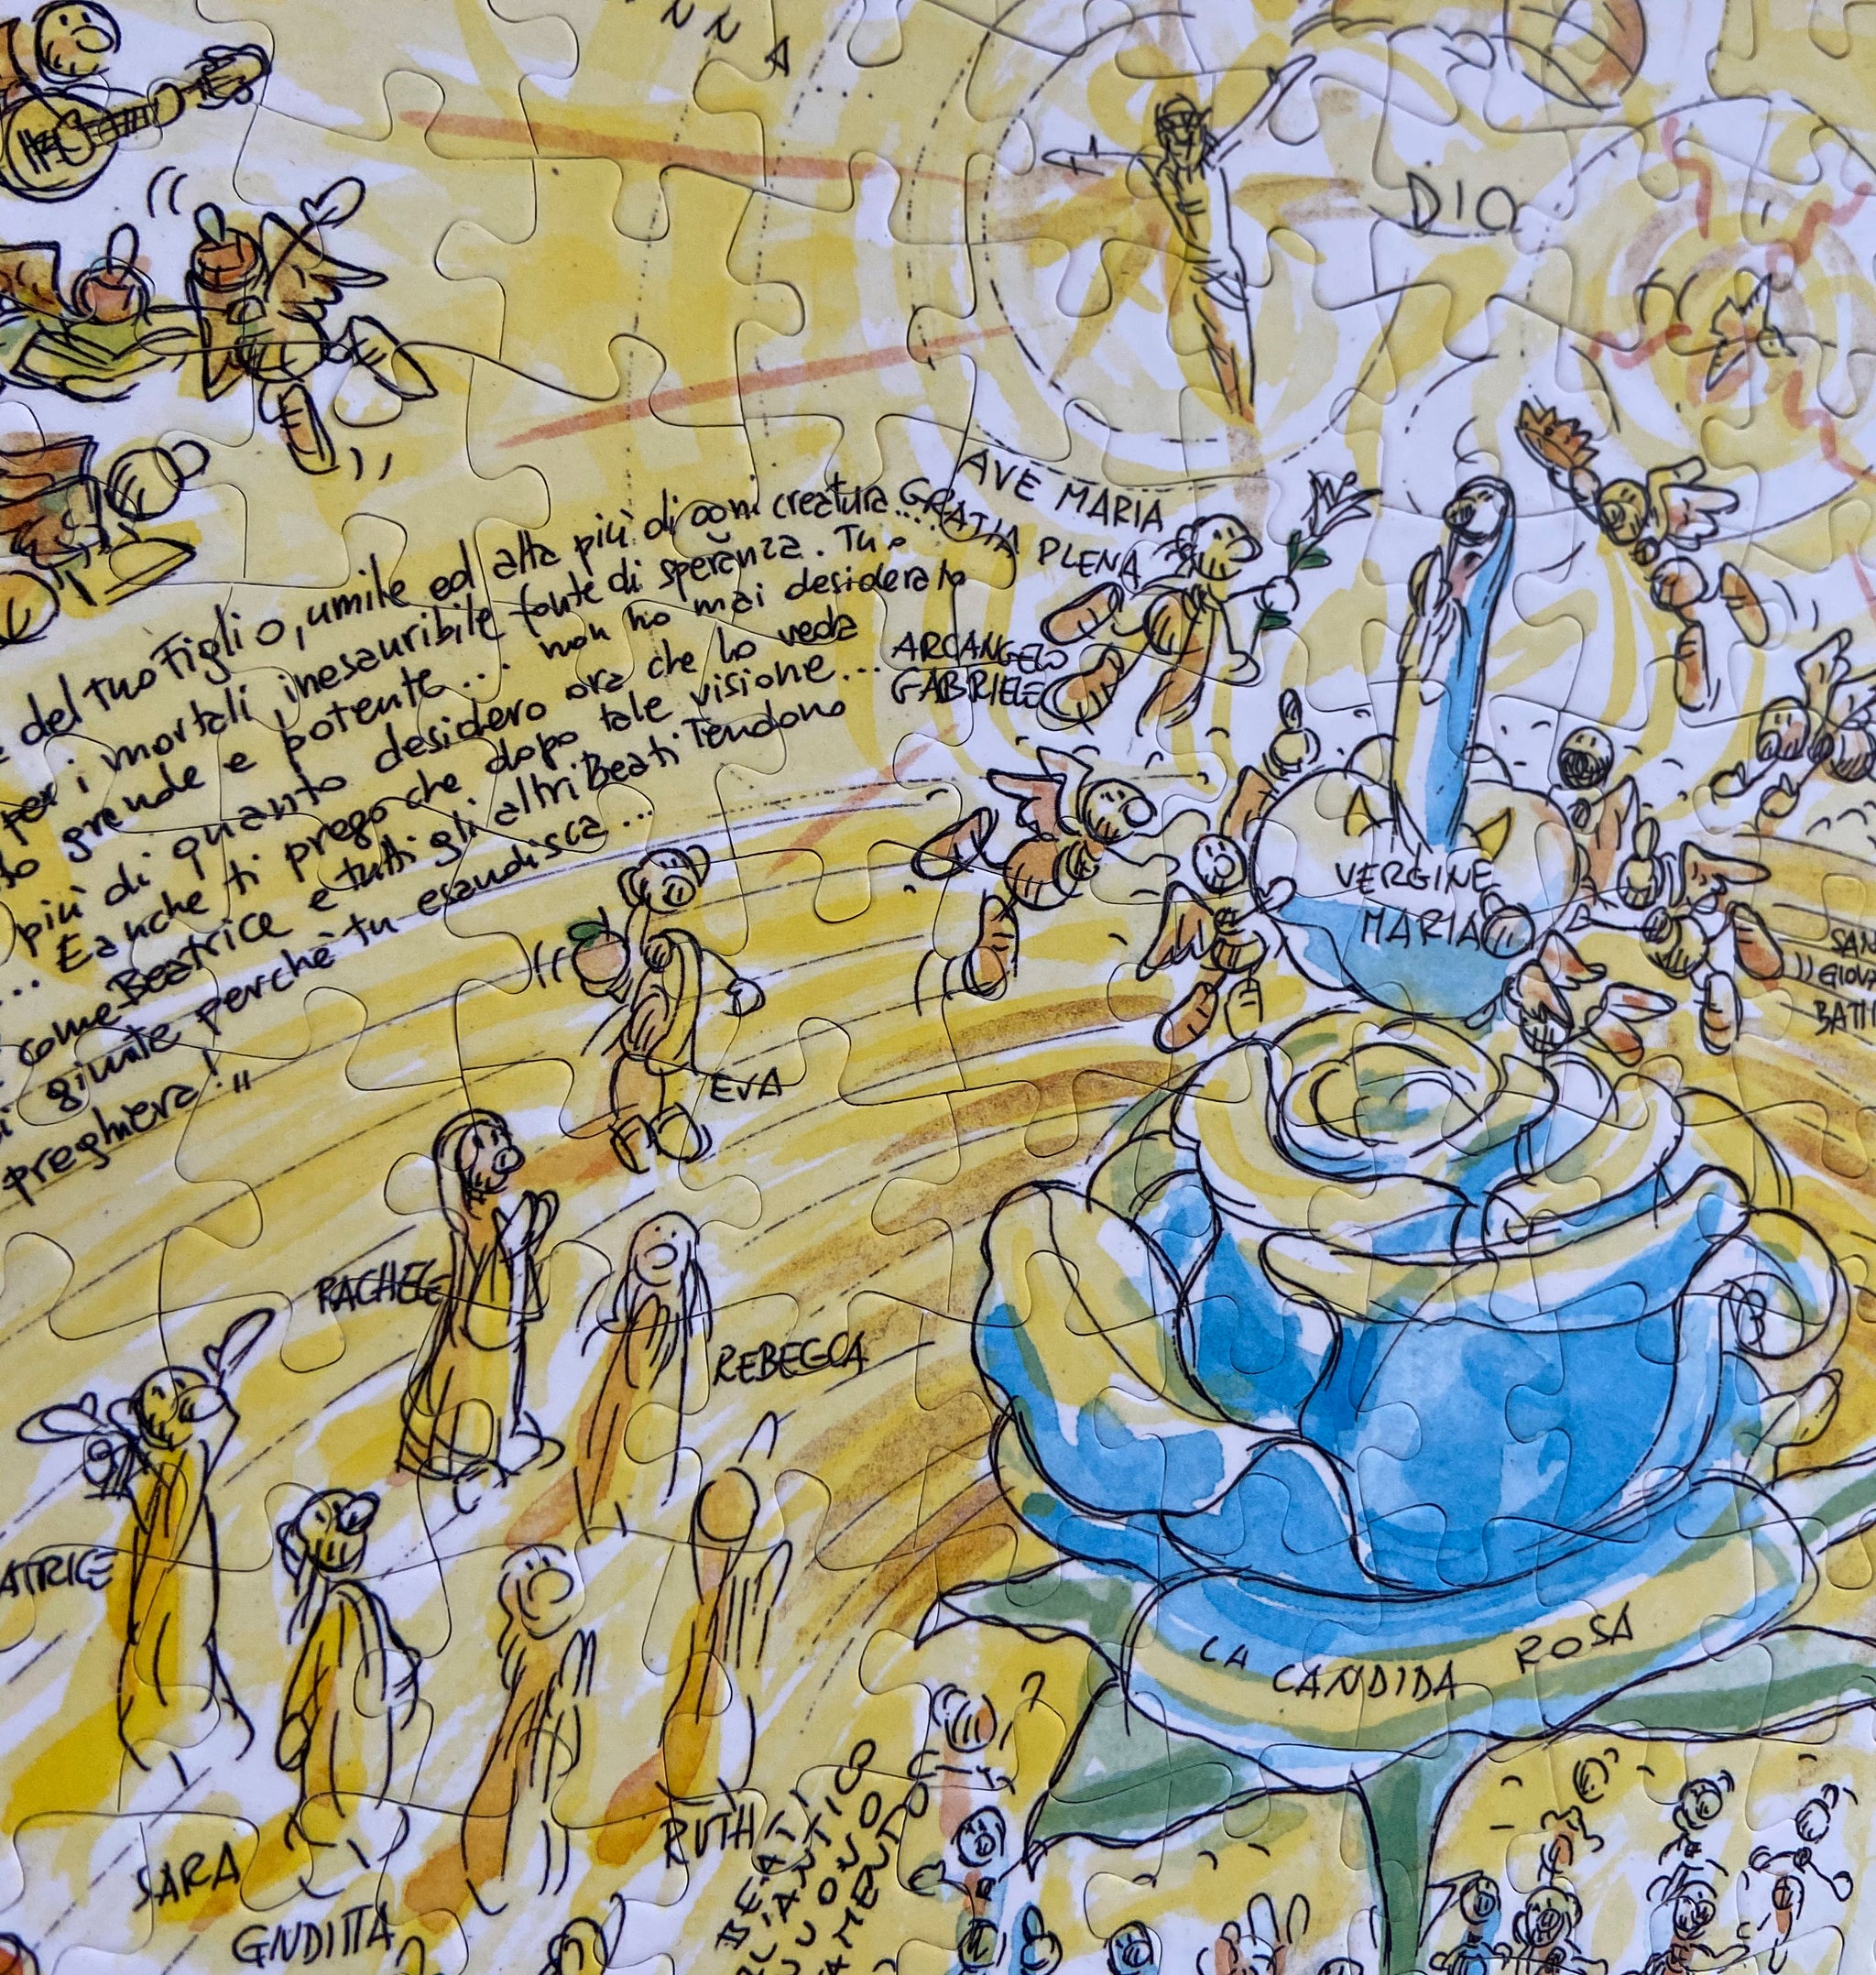 NNA
DIO
AVE MARIA
GRATIA PLENA
ARCANGELO
GABRIELE
del tuo Figlio, umile ed alta più di ogni creatura.....
per i mortali inesauribile fonte di speranza. Tu
grande e potente... non ho mai desiderato
più di quanto desidero ora che lo veda
... E anche ti prego che dopo tale visione...
come Beatrice e tutti gli altri Beati Tendono
giunte perchè tu esaudisca...
preghiera!"
VERGINE
MARIA
SAN
GIOVA
BATTI
EVA
RACHELE
REBECCA
ATRICE
LA CANDIDA ROSA
SARA
GIUDITTA
RUTH
BEATI